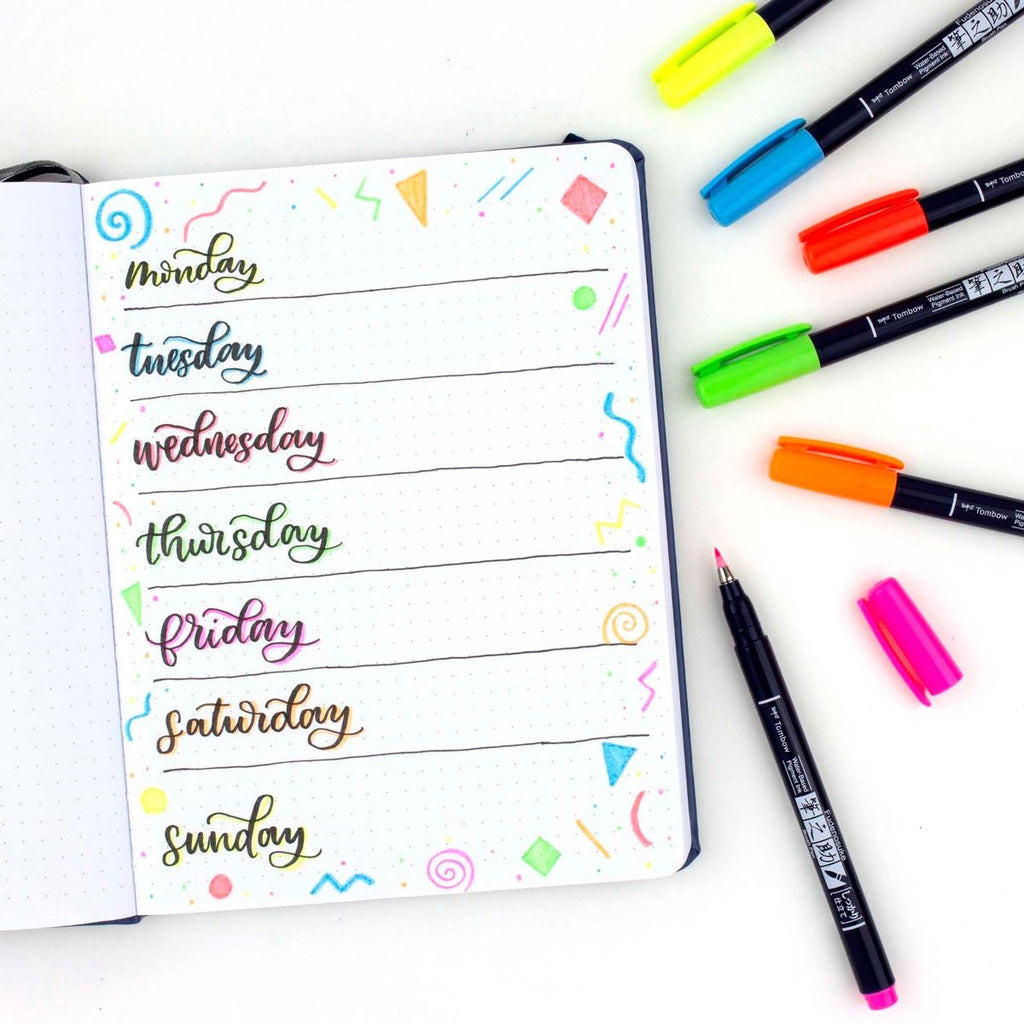 monday
tuesday
wednesday
thursday
friday
saturday
sunday
Tombow
Water-Based
Pigment Ink
筆之助
Fudenosuke
Brush Pen
Tombo
Tombow
Water-Based
Pigment Ink
筆之
Brush
Tombow
Tombow
Water-Based
Pigment Ink
筆之助
Fudenosuke
しっかり